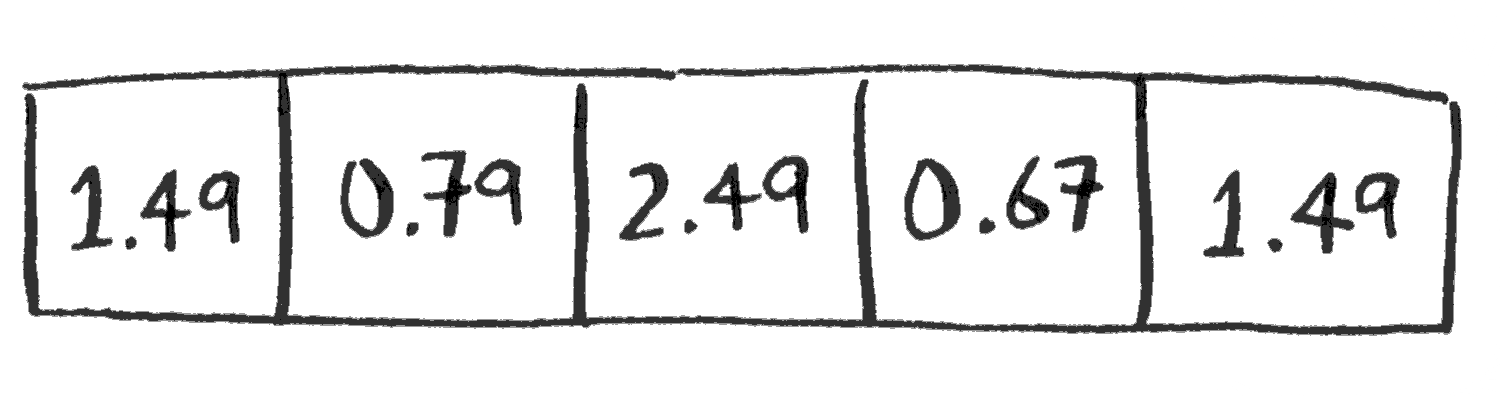 1.49 0.79 2.49 0.67 1.49